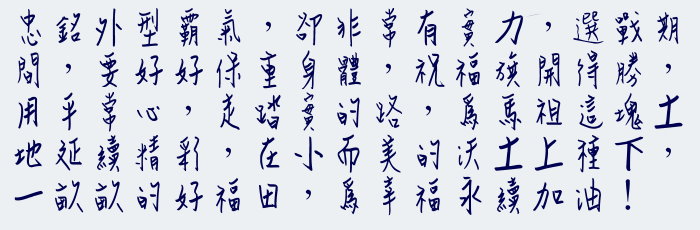 忠銘外型霸氣，卻非常有實力，選戰期
間，要好好保重身體，祝福旗開得勝，
用平常心，走踏實的路，為馬祖這塊土
地延續精彩，在小而美的沃土上種下，
一畝畝的好福田，為幸福永續加油！